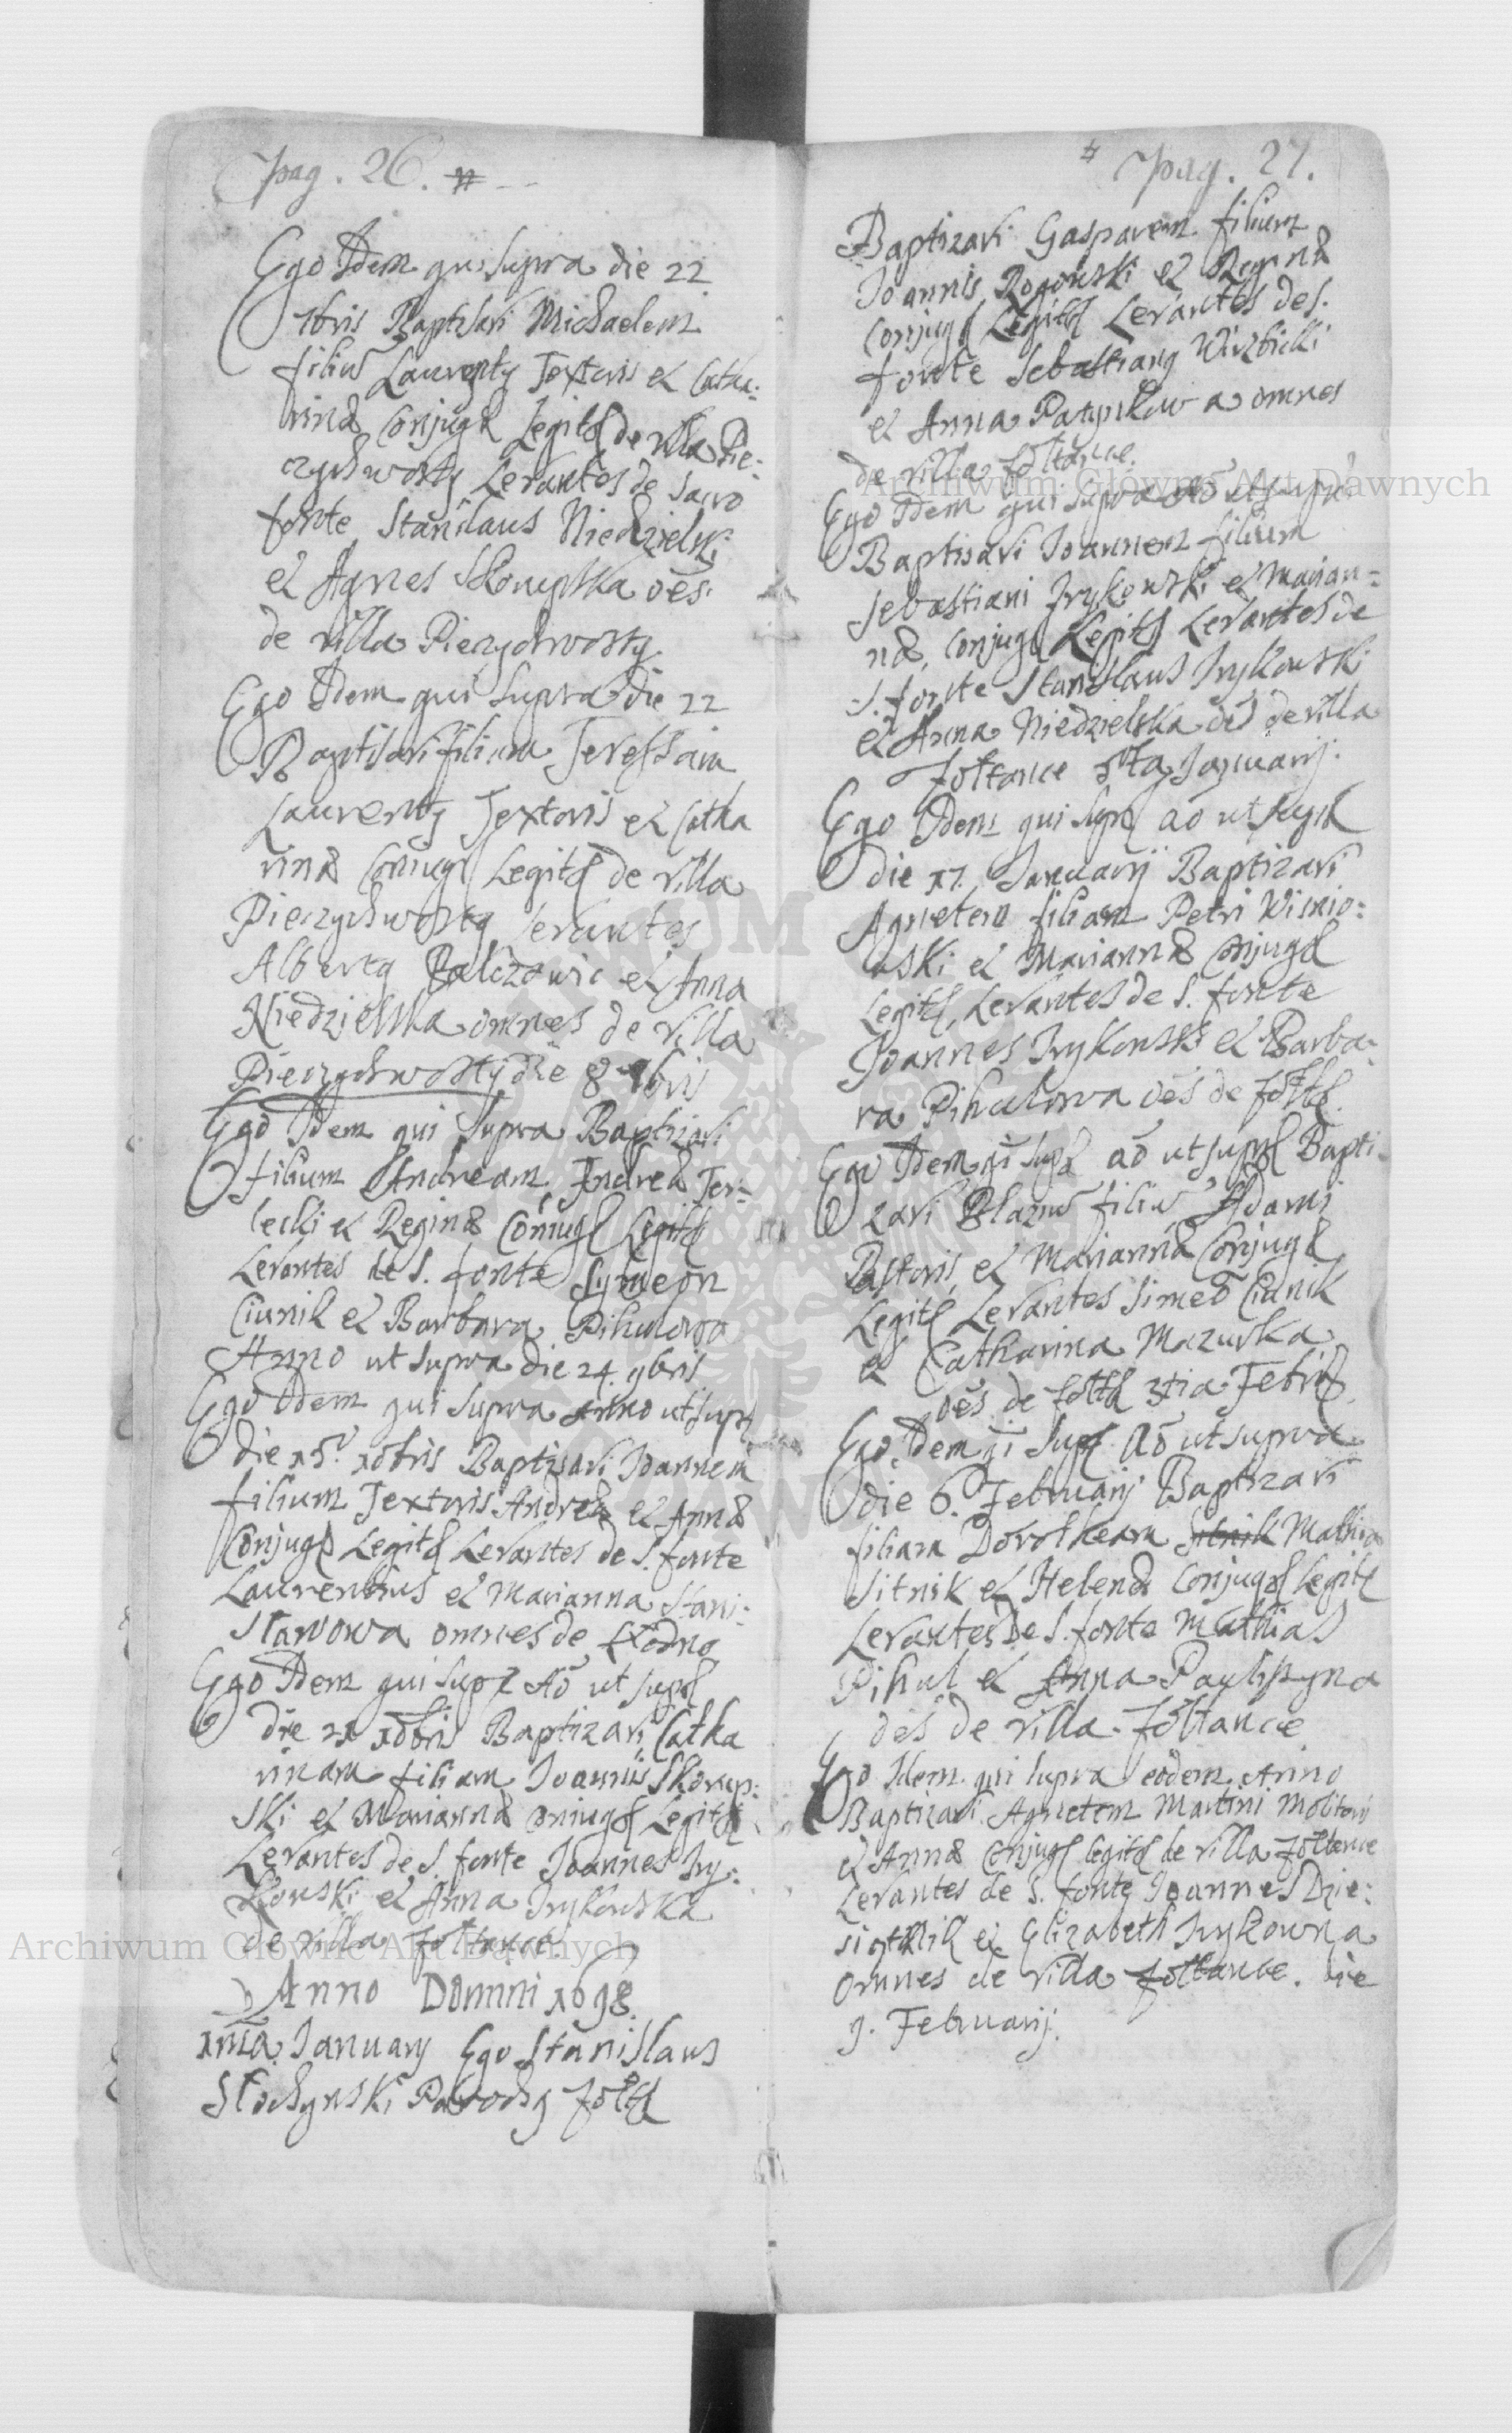 pag. 26. #
Ego Idem qui supra die 22
7bris Baptisavi Michaelem
filiũ Laurenty Textoris et Catha:
rinæ Conjugũ Legit de villa Pie:
czychwosty Levantes de sacro
fonte Stanilaus Niedzielski
et Agnes Skorupska oẽs
de villa Pieczychwosty
Ego Idem qui supra die 22
Baptisavi filiam Teressam
Laurenty Textoris et Catha
rinæ Coniug Legit de villa
Pieczychwosty levantes
Alberty Balczowic et Anna
Niedzielska omnes de villa
Pieczychwosty die 8 9bris
Ego Idem qui supra Baptizavi
filium Andream Andreæ Ter:
lecki et Reginæ Coniug Legit
Levantes de S. fonte Symeon
Ciunik et Barbara Pihulowa
Anno ut supra die 24. 9bris
Ego Idem qui supra Anno ut supr
die 15. 10bris Baptisavi Joannem
filium Textoris Andreæ et Annæ
Conjug Legit Levantes de S. fonte
Laurentius et Marianna Stani:
sławowa omnes de
Ego Idem qui supr Aõ ut supr
die 21 10bris Baptizavi Catha
rinam filiam Joannis Skorup:
ski et Mariannæ Coniug Legit
Levantes de S. fonte Joannes Iry:
kowski et Anna Irykowska
de villa Zoltance
Anno Domini 1698
1ma January Ego Stanislaus
Słochynski Parochy Zolt
# pag. 27.
Baptizavi Gasparem filium
Joannis Rogowski et Reginæ
Conjug Legit Levantes de S.
fonte Sebastiany Wirzbicki
et Anna Patynkowa omnes
de villa Zoltance.
Ego Idem qui supra Aõ ut supra
Baptisavi Joannem filium
Sebastiani Irykowski et Marian=
næ, Conjug Legit Levantes de
S. fonte Stanislaus Irykowski
et Anna Niedzielska oẽs de villa
Zoltance 6ta January.
Ego Idem qui supr aõ ut supr
die 17. January Baptizavi
Agnetem filiam Petri Wisnio:
wski et Mariannæ Conjug
Legit, Levantes de S. fonte
Joannes Irykowski et Barba:
ra Pihulowa oẽs de Zolt.
Ego Idem qi supr aõ ut supr Bapti:
zavi Blaziũ filiũ Adami
Pastoris et Mariannæ Conjug
Legit Levantes Simeõ Ciunik
et Catharina Mazurka
oẽs de Zolt 3tia Febr.
Ego Idem qi supr Aõ ut supra
die 6. February Baptizavi
filiam Dorotheam Sitnik Mathiæ
Sitnik et Helenæ Conjug Legit
Levantes de S. fonte Mathias
Pihul et Anna
oẽs de villa Zoltance
Ego Idem qui supra eodem Anno
Baptizavi Agnetem Martini Molitoris
et Annæ Conjug legit de villa Zoltance
Levantes de S. fonte Joannes Dzie:
siętnik et Elizabeth Irykowna
omnes de villa Zoltance. die
9. February.
Archiwum Główne Akt Dawnych
Archiwum Główne Akt Dawnych